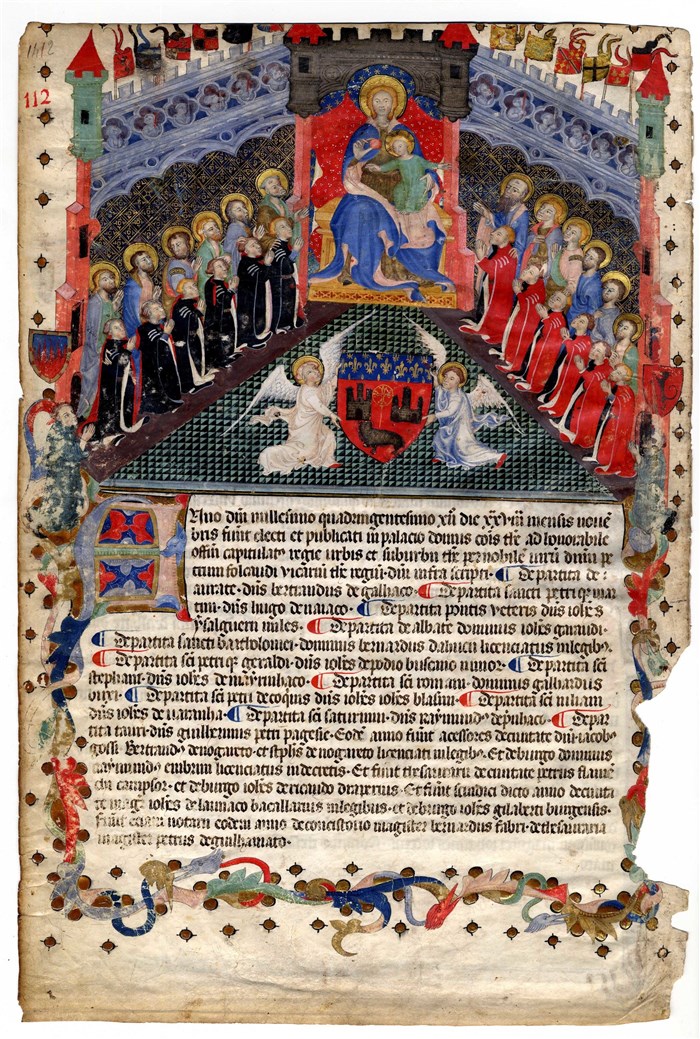 1412
112
Anno dni millesimo quadringentesimo xii die xxviii mensis nove
bris fuerūt electi et publicati in palacio domus cois thē ad honorabile
offm capitulatꝰ regie urbis et suburbii thē per nobile virū dnm pe
trum fulcaudi vicariū thē regiū dni infra scripti ¶ De partita de
aurate dns bertrandus de galhaco ¶ De partita sancti petri
dns hugo de naiaco ¶ De partita pontis veteris dns iohes
ysalguerii miles ¶ De partita de albate dominus iohes garaudi
¶ De partita sancti bartholomei dominus bernardus licenciatus in legibꝰ
¶ De partita sci petri geraldi dns iohes de podio buscano iunior ¶ De partita sci
stephani dns iohes de ¶ De partita sci romani dominus galhardus
¶ De partita sci petri de coquinis dns iohes iohes blasini ¶ De partita sci iuliani
dns iohes de varanha ¶ De partita sci saturnini dns raymundꝰ de pulhaco ¶ De par
tita tauri dns guillermus petri pagesie Eodē anno fuerūt acessores de civitate dns iacobꝰ
gossi Bertrandꝰ de nogareto et de nogareto licenciati in legibꝰ Et de burgo dominus
raymundꝰ licenciatus in decretis Et fuerūt thesaurarii de civitate petrus
campsor et de burgo iohes de ricaudo draperius Et fuerūt sindici dicto anno de civita
te magr iohes de launaco bacallarius in legibus et de burgo iohes gilaberti burgensis
Fuerūt eciam notarii eodem anno de concistorio magister bernardus fabri de thesauraria
magister petrus de guilhamato